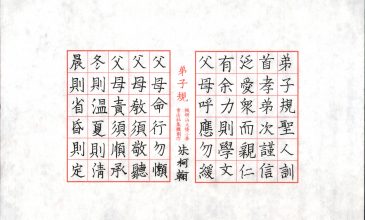 弟子規聖人訓
首孝弟次謹信
泛愛衆而親仁
有余力則學文
父母呼應勿緩
弟子規
朱柯翰
父母命行勿懶
父母教須敬聽
父母責須順承
冬則溫夏則清
晨則省昏則定